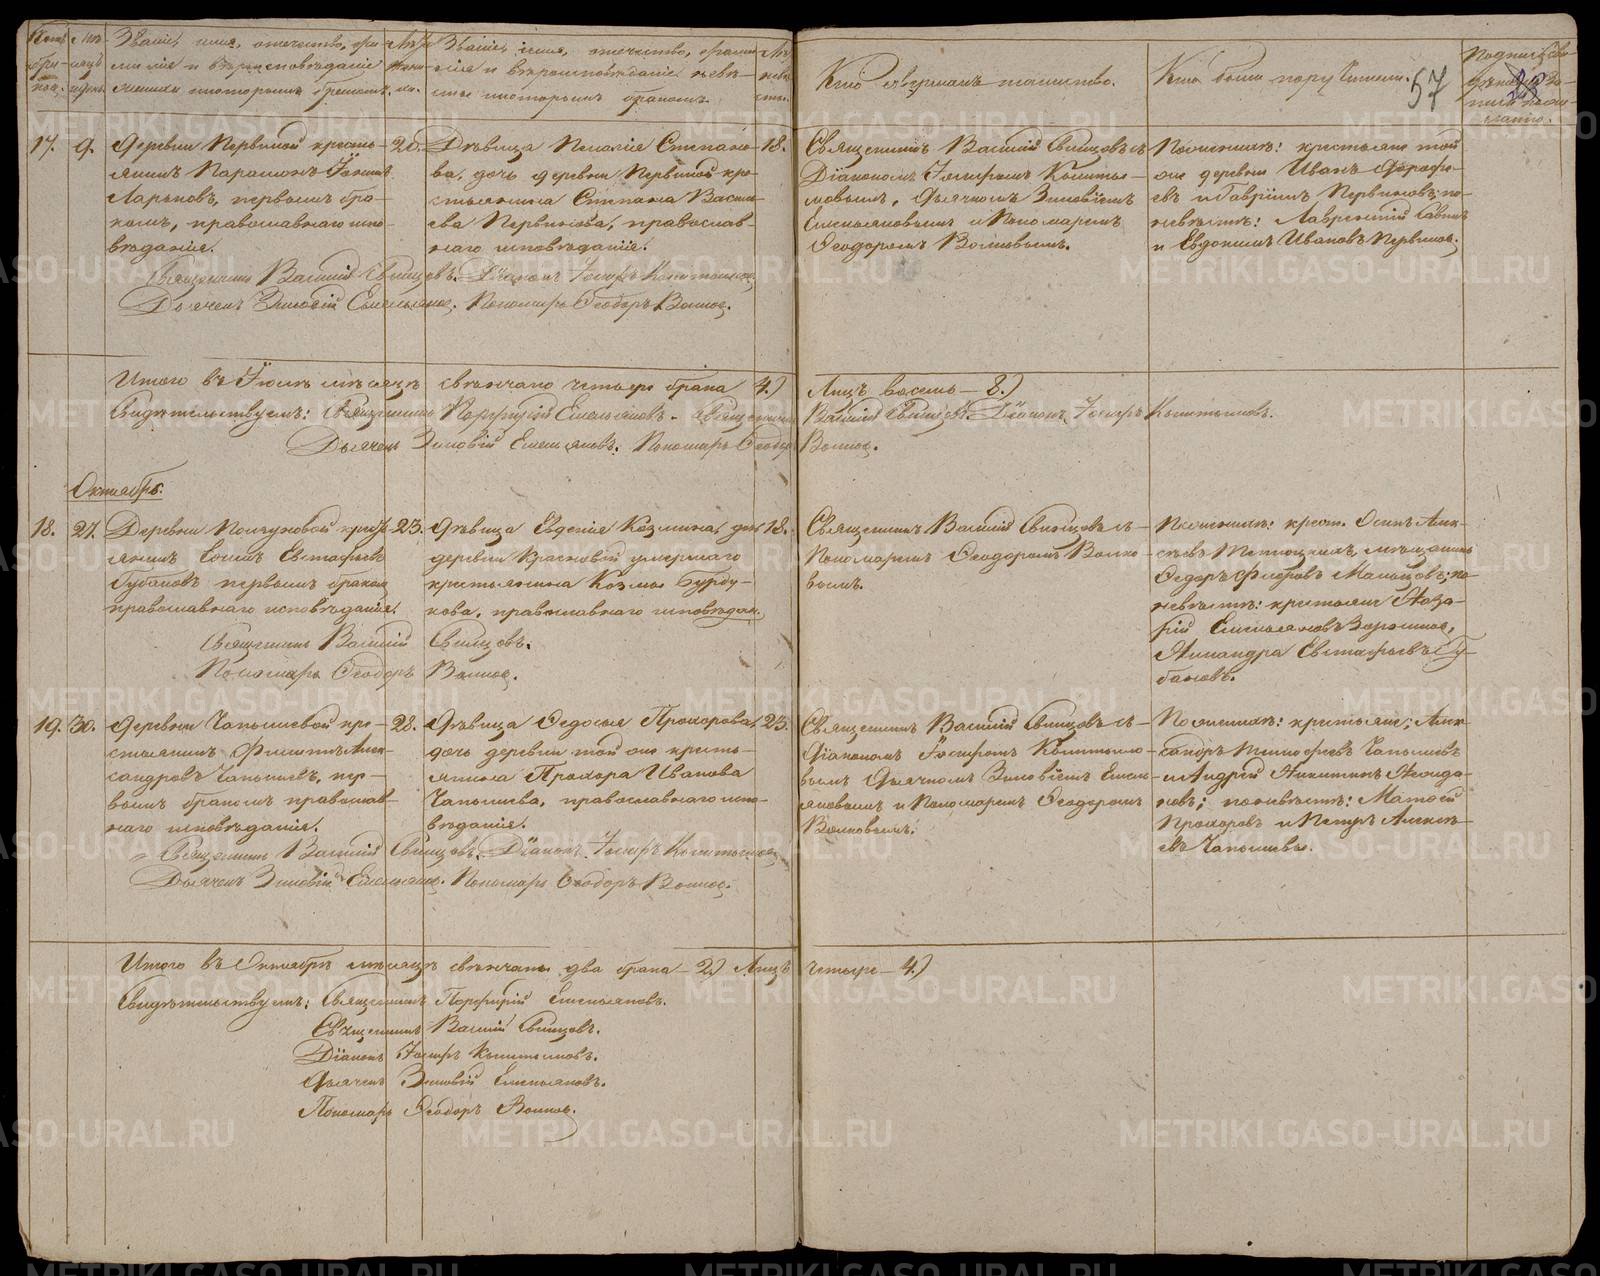 Званіе, имя, отечество, фа-
милія и вѣроисповѣданіе
жениха которымъ бракомъ.
Званіе, имя, отечество, фами-
лія и вѣроисповѣданіе невѣ-
сты которымъ бракомъ.
Кто совершалъ таинство.
Кто были поручители.
57
17. 9.
Деревни Первиной кресть-
янинъ Парамонъ
Ларьковъ, первымъ бра-
комъ, православнаго испо-
вѣданія.
20.
Дѣвица Пелагія Степано-
ва, дочь деревни Первиной кре-
стьянина Степана Васи-
ева Первикова, православ-
наго исповѣданія.
18.
Священникъ Василій Свинцовъ съ
Діакономъ Іосифомъ Копыты-
ловымъ, Дьячкомъ Зиновіемъ
Емельяновымъ и Пономаремъ
Ѳеодоромъ Волковымъ.
По женихѣ: крестьяне той
же деревни Иванъ
евъ и Гавріилъ Первиковъ; по
невѣстѣ: Лаврентій Савинъ
и Евдокимъ Ивановъ Первиковъ.
Священникъ Василій Свинцовъ. Діаконъ Іосифъ Копытыловъ
Дьячекъ Зиновій Емельяновъ. Пономарь Ѳеодоръ Волковъ.
Итого въ Іюлѣ мѣсяцѣ свѣнчано четыре брака 4.) Лицъ восемь – 8.)
Свидѣтельствуемъ: Священникъ Порфирій Емельяновъ. Священникъ Василій Свинцовъ. Діаконъ Іосифъ Копытыловъ.
Дьячекъ Зиновій Емельяновъ. Пономарь Ѳеодоръ Волковъ.
Октябрь.
18. 27.
Деревни Ползуновой кресть-
янинъ Евстафіевъ
Губановъ первымъ бракомъ
православнаго исповѣданія.
23.
Дѣвица Евгенія Козмина, дочь
деревни Красновой умершаго
крестьянина Козмы Бурду-
кова, православнаго исповѣдан.
18.
Священникъ Василій Свинцовъ съ
Пономаремъ Ѳеодоромъ Волко-
вымъ.
По женихѣ: крест. Осипъ Алек-
сѣевъ мѣщанинъ
Ѳедоръ Федоровъ Мальцовъ; по
невѣстѣ: крестьяне Наза-
рій Емельяновъ
Никандра Евстафьевъ Гу-
бановъ.
Священникъ Василій Свинцовъ.
Пономарь Ѳеодоръ Волковъ.
19. 30.
Деревни Чапышевой кре-
стьянинъ Филиппъ Алек-
сандровъ Чапышевъ, пер-
вымъ бракомъ православ-
наго исповѣданія.
28.
Дѣвица Ѳедосья Прохорова,
дочь деревни той же кресть-
янина Прохора Иванова
Чапышева, православнаго испо-
вѣданія.
23.
Священникъ Василій Свинцовъ съ
Діакономъ Іосифомъ Копытыло-
вымъ Дьячкомъ Зиновіемъ Емель-
яновымъ и Пономаремъ Ѳеодоромъ
Волковымъ.
По женихѣ: крестьяне; Алек-
сандръ Тимофѣевъ Чапышевъ
и Андрей Никитинъ Леонда-
ковъ; по невѣстѣ: Матвѣй
Прохоровъ и Петръ Алексѣ-
евъ Чапышевы.
Священникъ Василій Свинцовъ. Діаконъ Іосифъ Копытыловъ
Дьячекъ Зиновій Емельяновъ. Пономарь Ѳеодоръ Волковъ.
Итого въ Октябрѣ мѣсяцѣ свѣнчаны два брака – 2.) Лицъ четыре – 4.)
Свидѣтельствуемъ: Священникъ Порфирій Емельяновъ.
Священникъ Василій Свинцовъ.
Діаконъ Іосифъ Копытыловъ.
Дьячекъ Зиновій Емельяновъ.
Пономарь Ѳеодоръ Волковъ.
METRIKI.GASO-URAL.RU